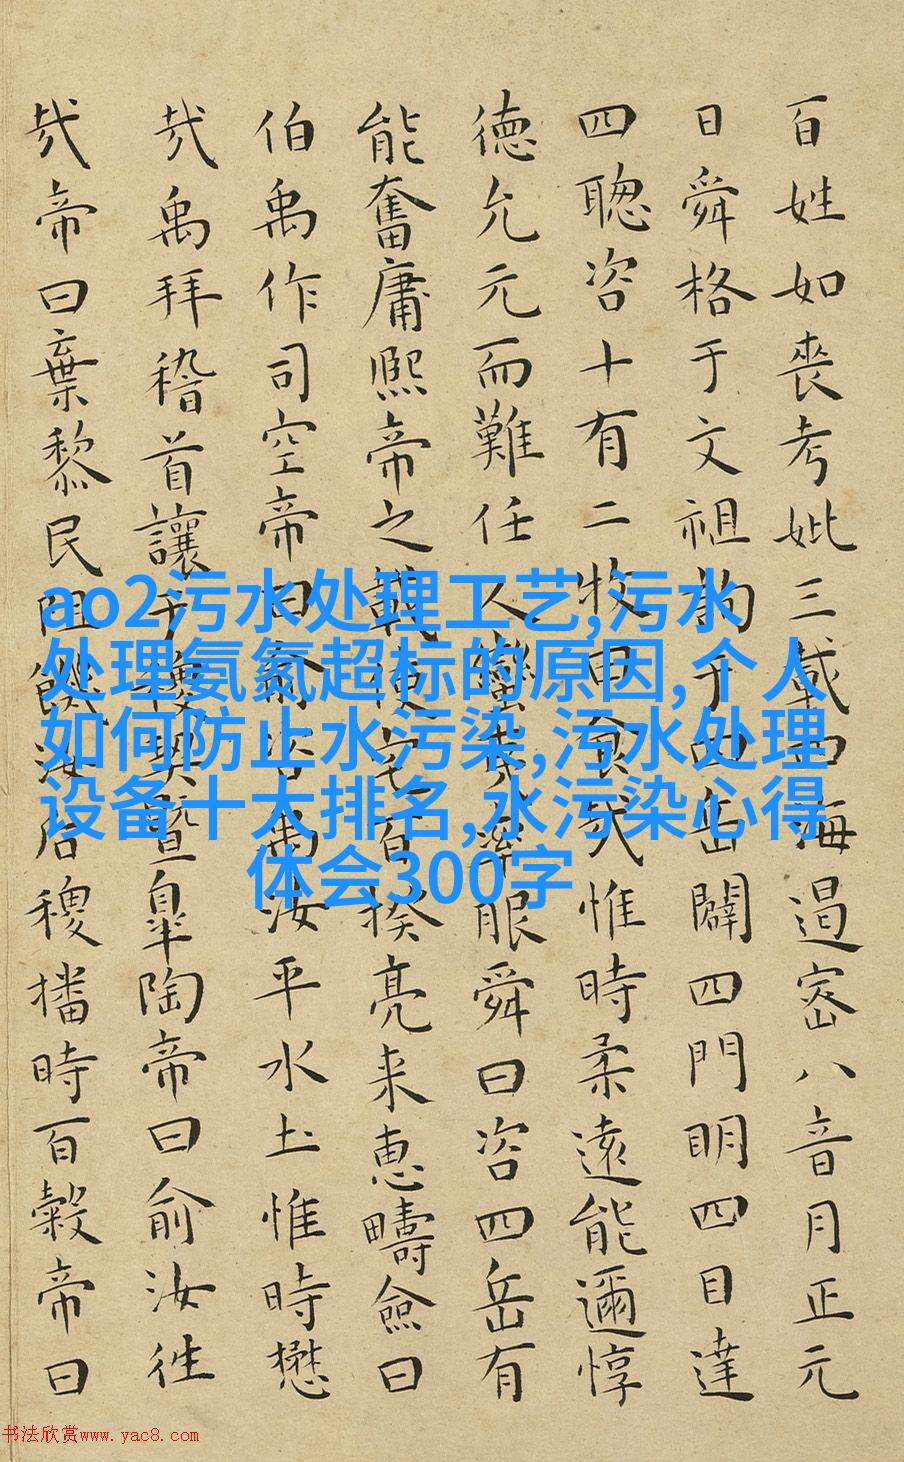 百姓如喪考妣三載四海遏密八音月正元
日舜格于文祖詢于四岳闢四門明四目達
四聰咨十有二牧曰食哉惟時柔遠能邇惇
德允元而難任人蠻夷率服舜曰咨四岳有
能奮庸熙帝之載使宅百揆亮来惠疇僉曰
伯禹作司空帝曰俞咨禹汝平水土惟時懋
哉禹拜稽首讓于稷契暨皐陶帝曰俞汝徃
哉帝曰棄黎民阻飢汝后稷播時百穀帝曰
ao2污水处理工艺,污水
处理氨氮超标的原因,个人
如何防止水污染,污水处理
设备十大排名,水污染心得
体会300字
书法欣赏www.yac8.com